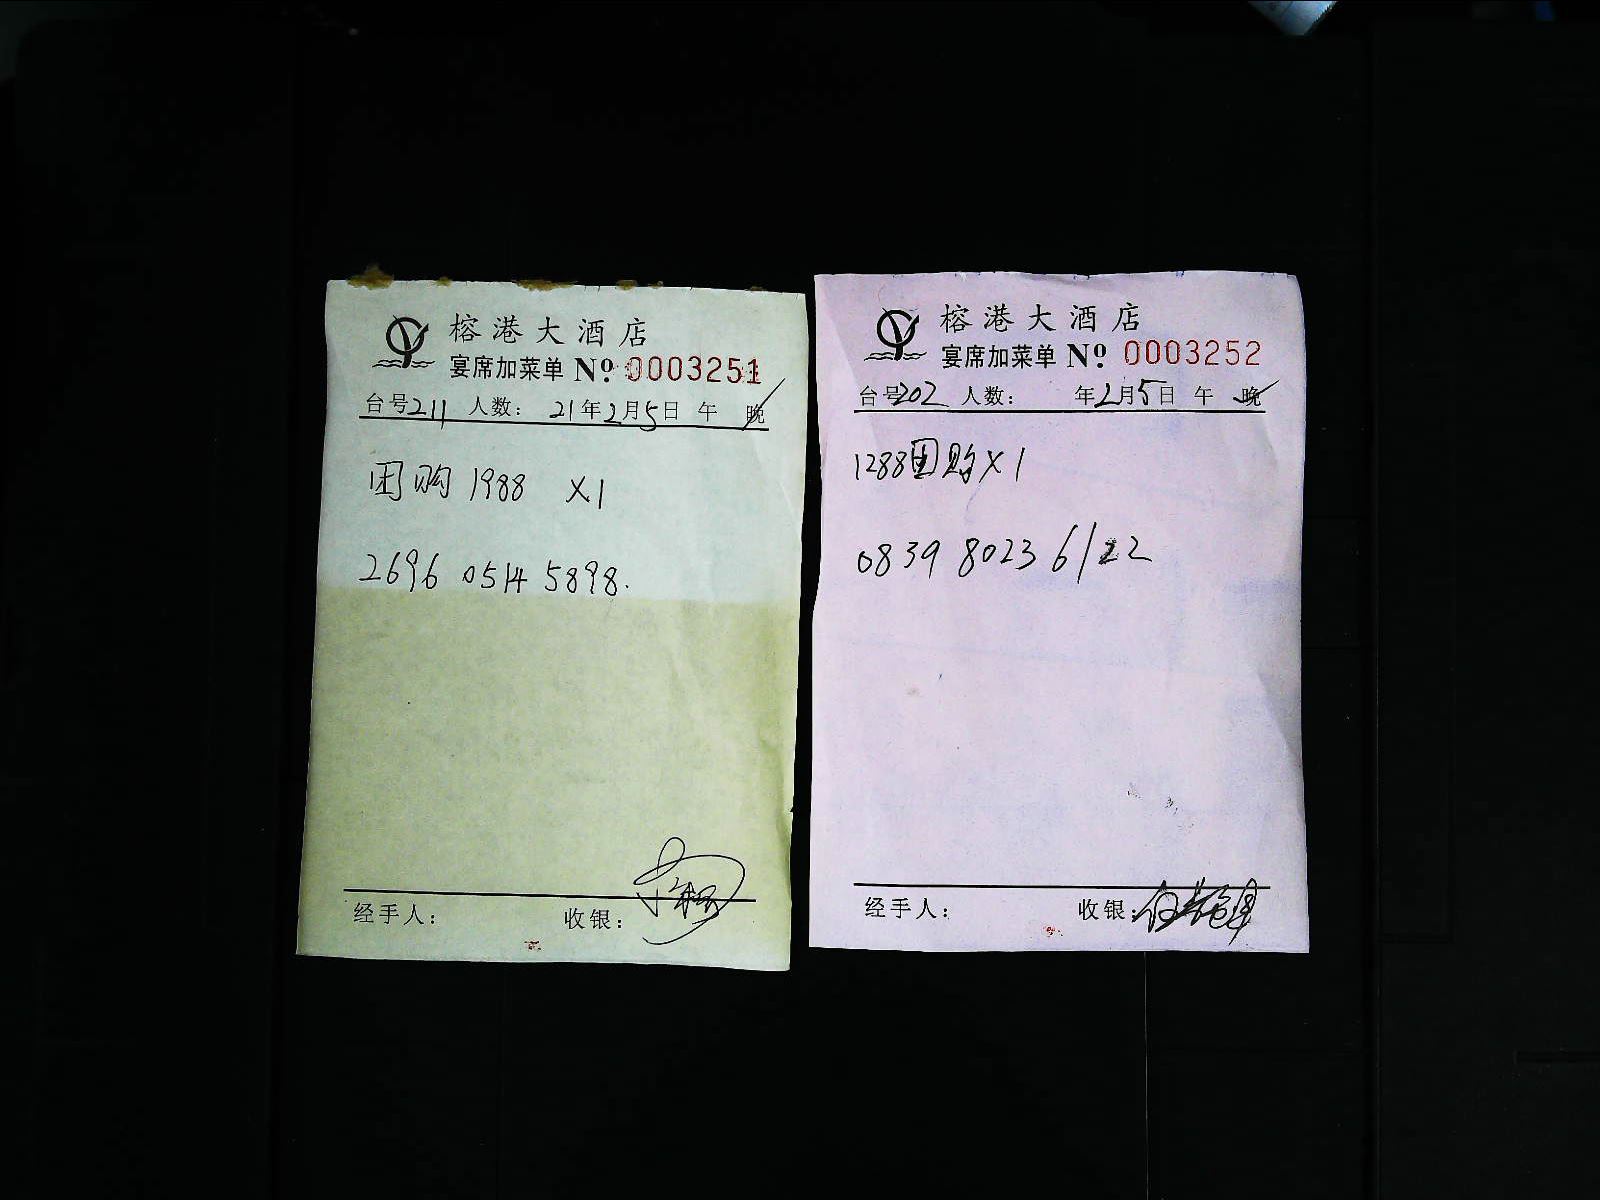 榕港大酒店
宴席加菜单 Nº 0003251
台号211 人数： 21年2月5日 午 晚
团购 1988 X1
2696 0514 5898.
经手人： 收银：
榕港大酒店
宴席加菜单 Nº 0003252
台号202 人数： 年2月5日 午 晚
1288团购X1
0839 8023 6122
经手人： 收银：